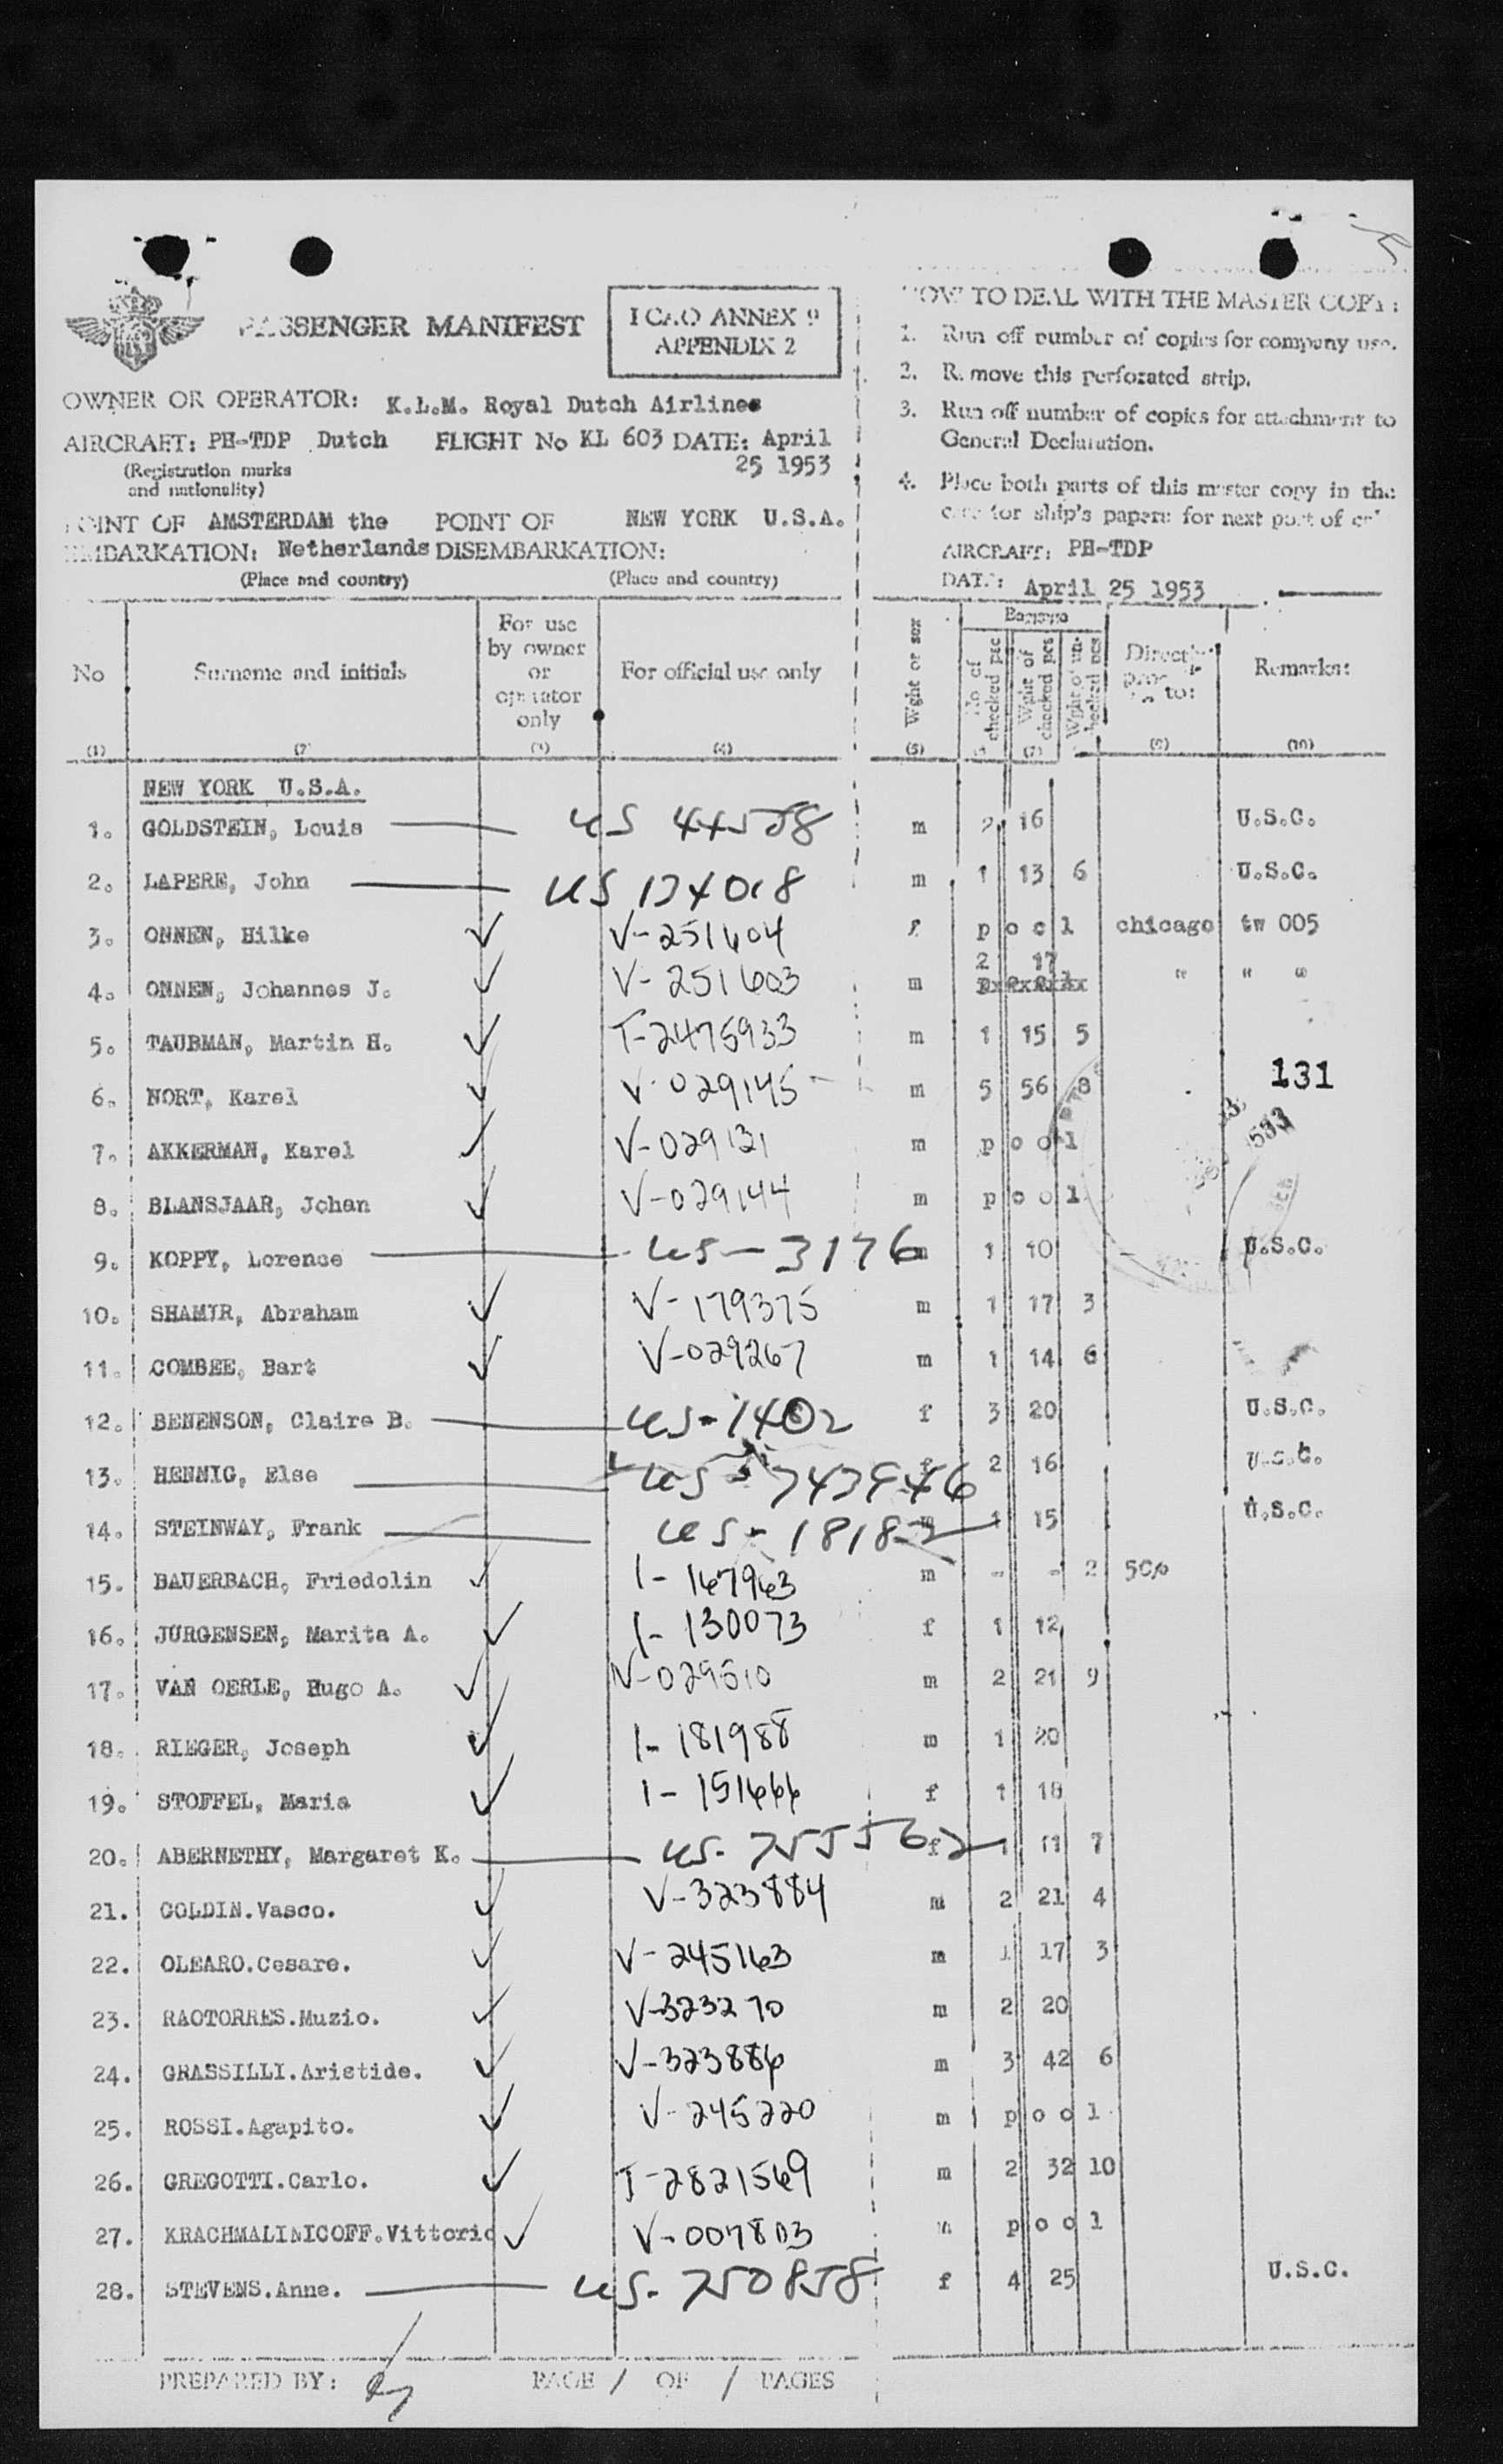 PASSENGER MANIFEST
ICAO ANNEX 9
APPENDIX 2
OWNER OR OPERATOR: K.L.M. Royal Dutch Airlines
AIRCRAFT: PH-TDP Dutch FLIGHT No KL 603 DATE: April
25 1953
(Registration marks
and nationality)
POINT OF AMSTERDAM the POINT OF NEW YORK U.S.A.
EMBARKATION: Netherlands DISEMBARKATION:
(Place and country) (Place and country)
HOW TO DEAL WITH THE MASTER COPY:
1. Run off number of copies for company use.
2. Remove this perforated strip.
3. Run off number of copies for attachment to
General Declaration.
4. Place both parts of this master copy in the
for ship's papers for next port of
AIRCRAFT: PH-TDP
DATE: April 25 1953
No Surname and initials For use by owner or operator only For official use only Wght or sex Baggage No of checked pcs Wght of checked pcs Wght of unchecked pcs Directly to: Remarks:
(1) (2) (3) (4) (5) (7) (9) (10)
NEW YORK U.S.A.
1. GOLDSTEIN, Louis US 44558 m 2 16 U.S.C.
2. LAPERE, John US 174018 m 1 13 6 U.S.C.
3. ONNEN, Hilke ✓ V-251604 f p o o l chicago tw 005
2 17
4. ONNEN, Johannes J. ✓ V-251603 m " " "
5. TAUBMAN, Martin H. ✓ T-2475933 m 1 15 5
6. NORT, Karel ✓ V-029145 m 5 56 8
131
7. AKKERMAN, Karel ✓ V-029131 m p o o l
8. BLANSJAAR, Johan ✓ V-029144 m p o o l
9. KOPPY, Lorence US-3176 m 1 10 U.S.C.
10. SHAMIR, Abraham ✓ V-179375 m 1 17 3
11. COMBEE, Bart ✓ V-029267 m 1 14 6
12. BENENSON, Claire B. US-1402 f 3 20 U.S.C.
13. HENNIG, Else US- f 2 16 U.S.C.
14. STEINWAY, Frank US-18182 m 1 15 U.S.C.
15. BAUERBACH, Friedolin ✓ I-167963 m - - 2 50%
16. JURGENSEN, Marita A. ✓ I-130073 f 1 12
17. VAN OERLE, Hugo A. ✓ V-029510 m 2 21 9
18. RIEGER, Joseph ✓ I-181988 m 1 20
19. STOFFEL, Maria ✓ I-151666 f 1 18
20. ABERNETHY, Margaret K. US-755562 f 1 11 7
21. GOLDIN.Vasco. ✓ V-323884 m 2 21 4
22. OLEARO.Cesare. ✓ V-245163 m 1 17 3
23. RAOTORRES.Muzio. ✓ V-323270 m 2 20
24. GRASSILLI.Aristide. ✓ V-323886 m 3 42 6
25. ROSSI.Agapito. ✓ V-245220 m p o o l
26. GREGOTTI.Carlo. ✓ T-2821569 m 2 32 10
27. KRACHMALINICOFF.Vittorio ✓ V-007803 m p o o l
28. STEVENS.Anne. US-750858 f 4 25 U.S.C.
PREPARED BY: PAGE / OF / PAGES